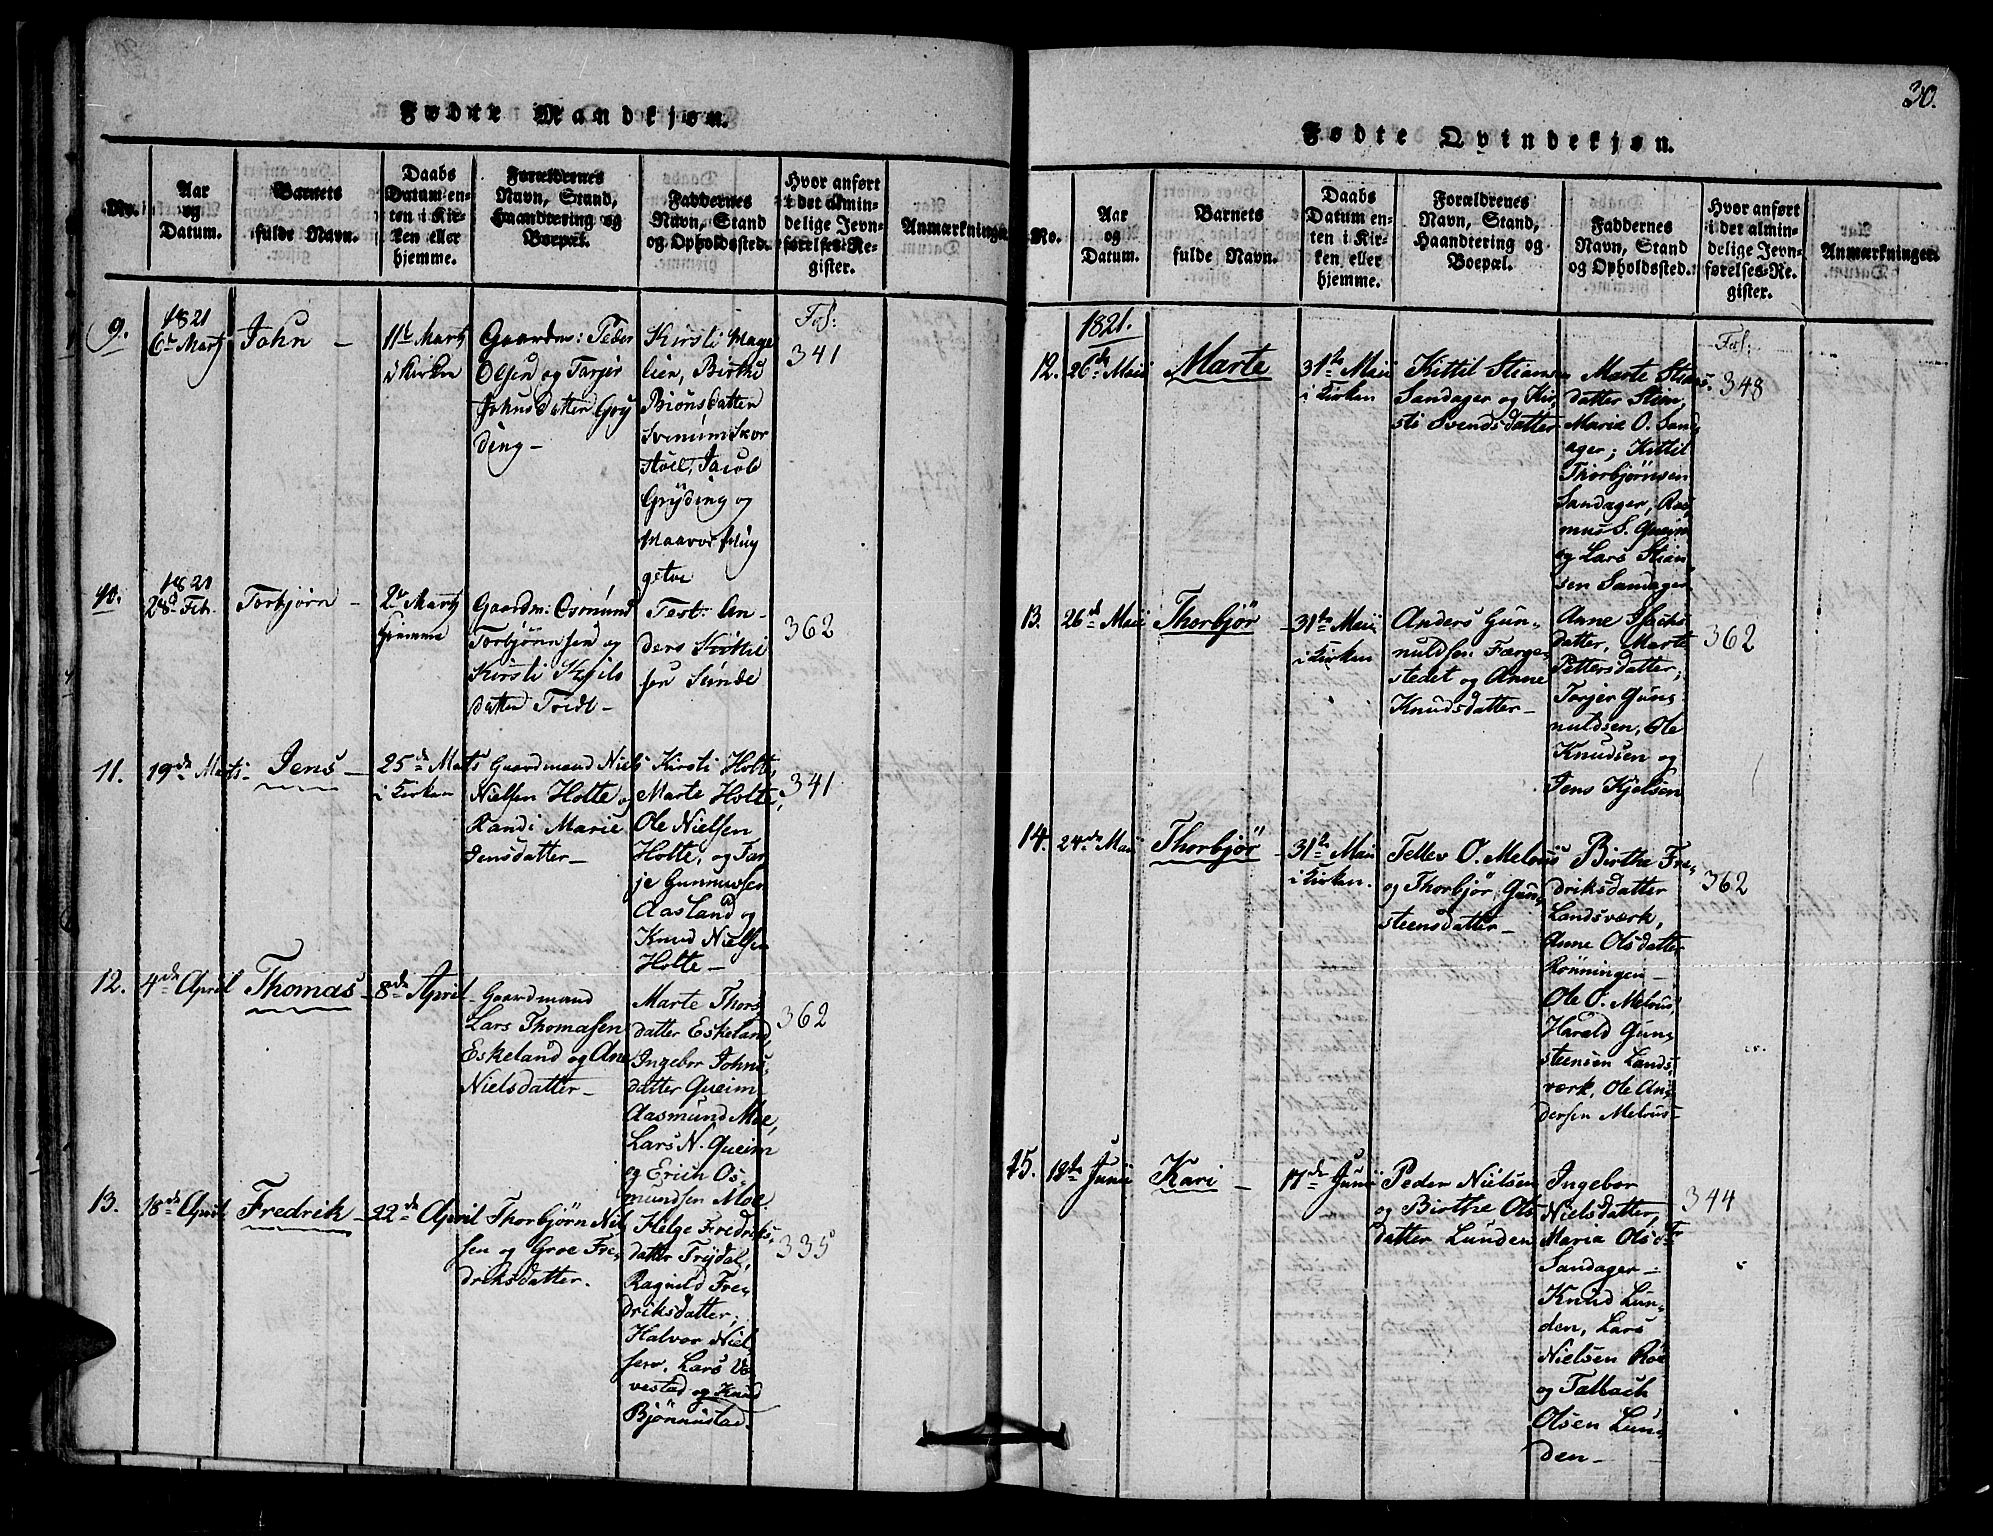 Fødte Mandkjøn.
No.
Aar
og
Datum.
Barnets
fulde Navn.
Daabs
Datum en-
ten i Kir-
ken eller
hjemme.
Forældrenes
Navn, Stand,
Haandtering og
Boepæl.
Faddernes
Navn, Stand
og Opholdssted.
Hvor anført
i det almin-
delige Jevn-
førelses-Re-
gister.
Anmærkninger
9.
1821
6te Marts
John –
11te Marts
i Kirken
Gaardm: Peder
Olsen og Tarjer
Johnsdatter Gry
ding –
Kirsti
lien, Birthe
Biønsdatter
støel, Jacob
Gryding og
Fol:
341
10.
1821
28de Feb.
Torbjørn –
2de Marts
hjemme
Gaardm: Osmund
Torbjørnsen og
Kirsti
datter
Test: An-
ders Kittil
sen Sunde
362
11.
19de Marts
Jens –
25de Marts
i Kirken
Gaardmand Niels
Nielsen Holte og
Randi Marie
Jensdatter –
Kirsti Holte,
Marte Holte,
Ole Nielsen
Holte, og Tar
je Gunnufsen
Aasland og
Knud Nielsen
Holte –
341
12.
4de April
Thomas –
8de April
Gaardmand
Lars Thomasen
Eskeland og Ane
Nielsdatter –
Marte Thors
datter Eskeland,
Ingebor Johns
datter Queim
Aasmund Moe,
Lars N. Queim
og Erich Os-
mundsen Moe.
362
13.
18de April
Fredrik –
22de April
Thorbjørn Niel
sen og Groe Fre-
driksdatter.
Helge Fredriks-
datter Frydal,
Ragnild Fre-
driksdatter,
Halvor Niel
sen, Lars Ve
vestad og Knud
335
30.
Fødte Qvindekjøn.
No.
Aar
og
Datum.
Barnets
fulde Navn.
Daabs
Datum en-
ten i Kir-
ken eller
hjemme.
Forældrenes
Navn, Stand,
Haandtering og
Boepæl.
Faddernes
Navn, Stand
og Opholdssted.
Hvor anført
i det almin-
delige Jevn-
førelses-Re-
gister.
Anmærkninger
1821.
12.
26de Maii
Marte
31te Maii
i Kirken
Kittil Stiansen
Sandager og Kir,
sti Svendsdatter
Marte Stians-
datter Stem,
Marie O. Sand,
ager; Kittil
Thorbjørnsen
Sandager, Ras
mus S. Queim
og Lars Stian
sen Sandager
Fol:
348
13.
26de Maii
Thorbjør
31te Maii
i Kirken
Anders Gun-
nuldsen Færge-
stedet og Anne
Knudsdatter –
Anne Isachs
datter, Marte
Pettersdatter;
Torjer Gun-
nuldsen, Ole
Knudsen og
Jens Kjelsen
362
14.
24de Maii
Thorbjør
31te Maii
i Kirken.
Tellev O. Melruus
og Thorbjør Gun-
steensdatter –
Birthe Fre-
driksdatter
Landsværk,
Anne Olsdatter
Rønningen –
Ole O. Melruus,
Harald Gun-
steensen Lands
værk, Ole An-
dersen Melruus –
362
15.
12te Junii
Kari –
17de Junii
Peder Nielsen
og Birthe Ols
datter Lunden
Ingebor
Nielsdatter,
Maria Olsdtr
Sandager –
Knud Lun-
den, Lars
Nielsen Roe
og Talbach
Olsen Lun-
den –
344